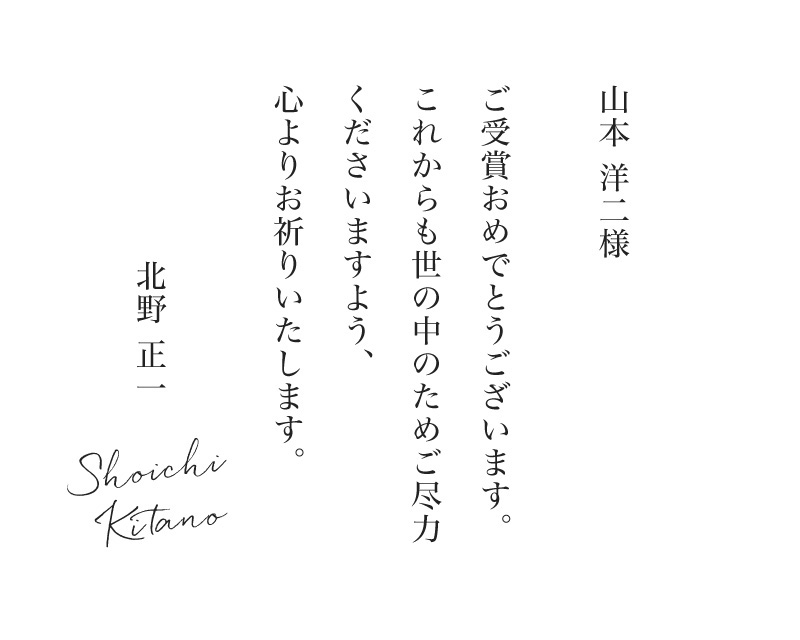 山本 洋二様
ご受賞おめでとうございます。
これからも世の中のためご尽力
くださいますよう、
心よりお祈りいたします。
北野 正一
Shoichi
Kitano